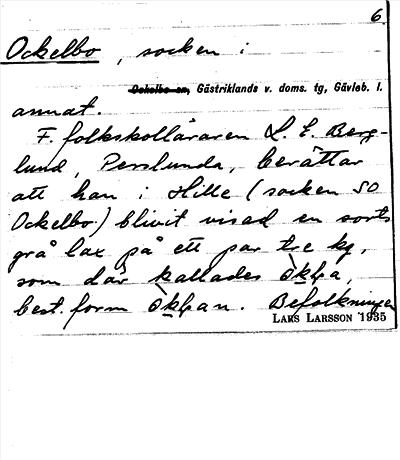 6
Ockelbo, socken i
Ockelbo sn, Gästriklands v. doms. tg, Gävleb. l.
annat.
F. folkskolläraren L. E. Berg-
lund, Perslunda, berättar
att han i Hille (socken SO
Ockelbo) blivit visad en sorts
grå lax på ett par tre kg,
som där kallades
best. form Befolkningen
LARS LARSSON 1935